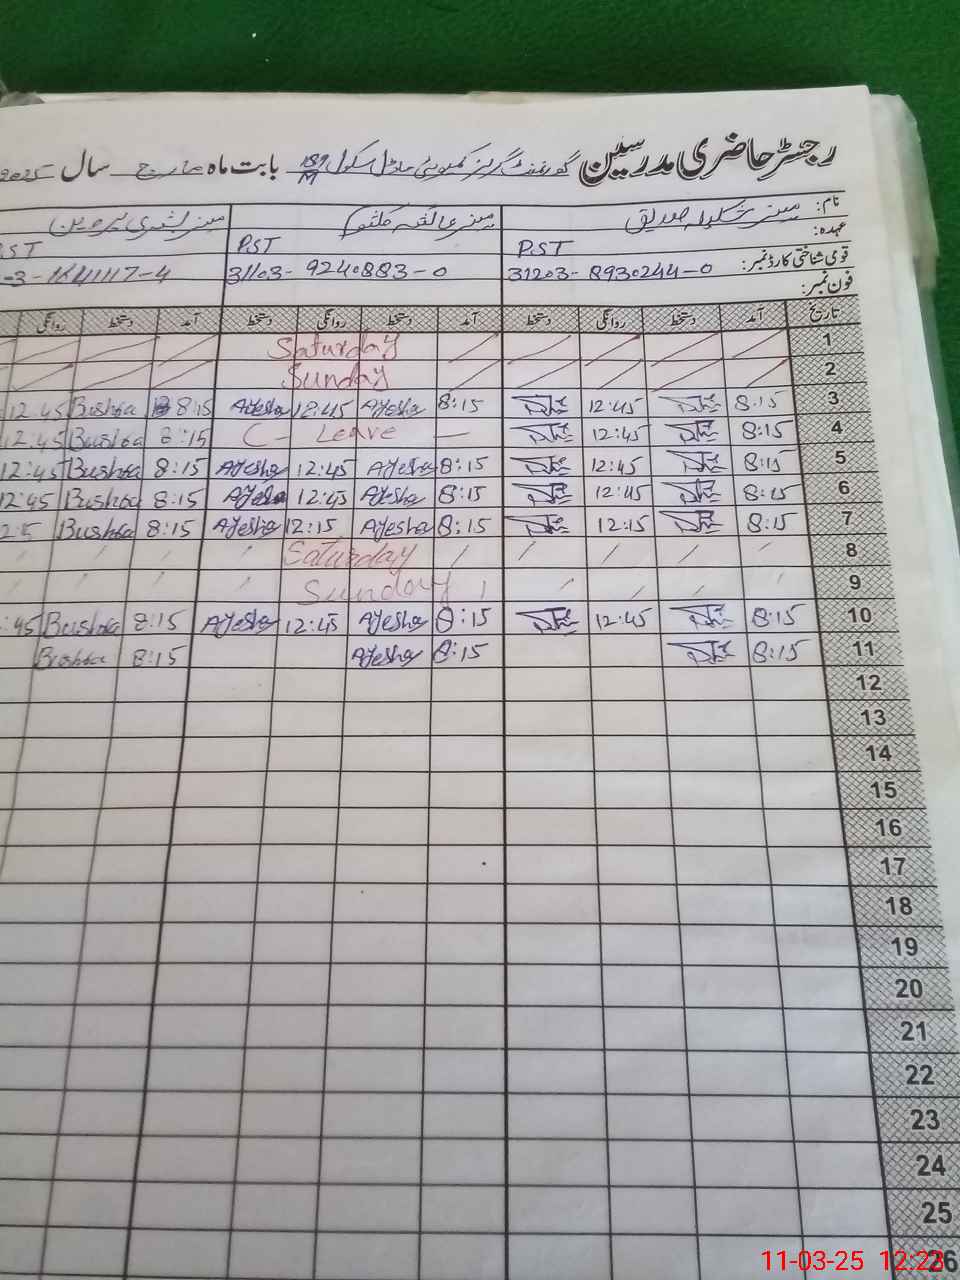 رجسٹر حاضری مدرسین گورنمنٹ گرلز کمیونٹی ماڈل سکول 157/M بابت ماہ مارچ سال 2025
نام: مسز شکیلہ صدیق مسز عائشہ کلثوم مسز بشریٰ پروین
عہدہ: PST PST PST
قومی شناختی کارڈ نمبر: 31203-8930244-0 31103-9240883-0
فون نمبر:
تاریخ آمد دستخط روانگی دستخط آمد دستخط روانگی دستخط آمد دستخط روانگی
1 Saturday
2 Sunday
3 8:15 12:45 8:15 Ayesha 12:45 Ayesha 8:15 Bushra 12:45
4 8:15 12:45 C- Leave 8:15 Bushra 12:45
5 8:15 12:45 8:15 Ayesha 12:45 Ayesha 8:15 Bushra 12:45
6 8:15 12:45 8:15 Ayesha 12:45 Ayesha 8:15 Bushra 12:45
7 8:15 12:15 8:15 Ayesha 12:15 Ayesha 8:15 Bushra
8 Saturday
9 Sunday
10 8:15 12:45 8:15 Ayesha 12:45 Ayesha 8:15 Bushra :45
11 8:15 8:15 Ayesha 8:15 Bushra
12
13
14
15
16
17
18
19
20
21
22
23
24
25
26
11-03-25 12:23